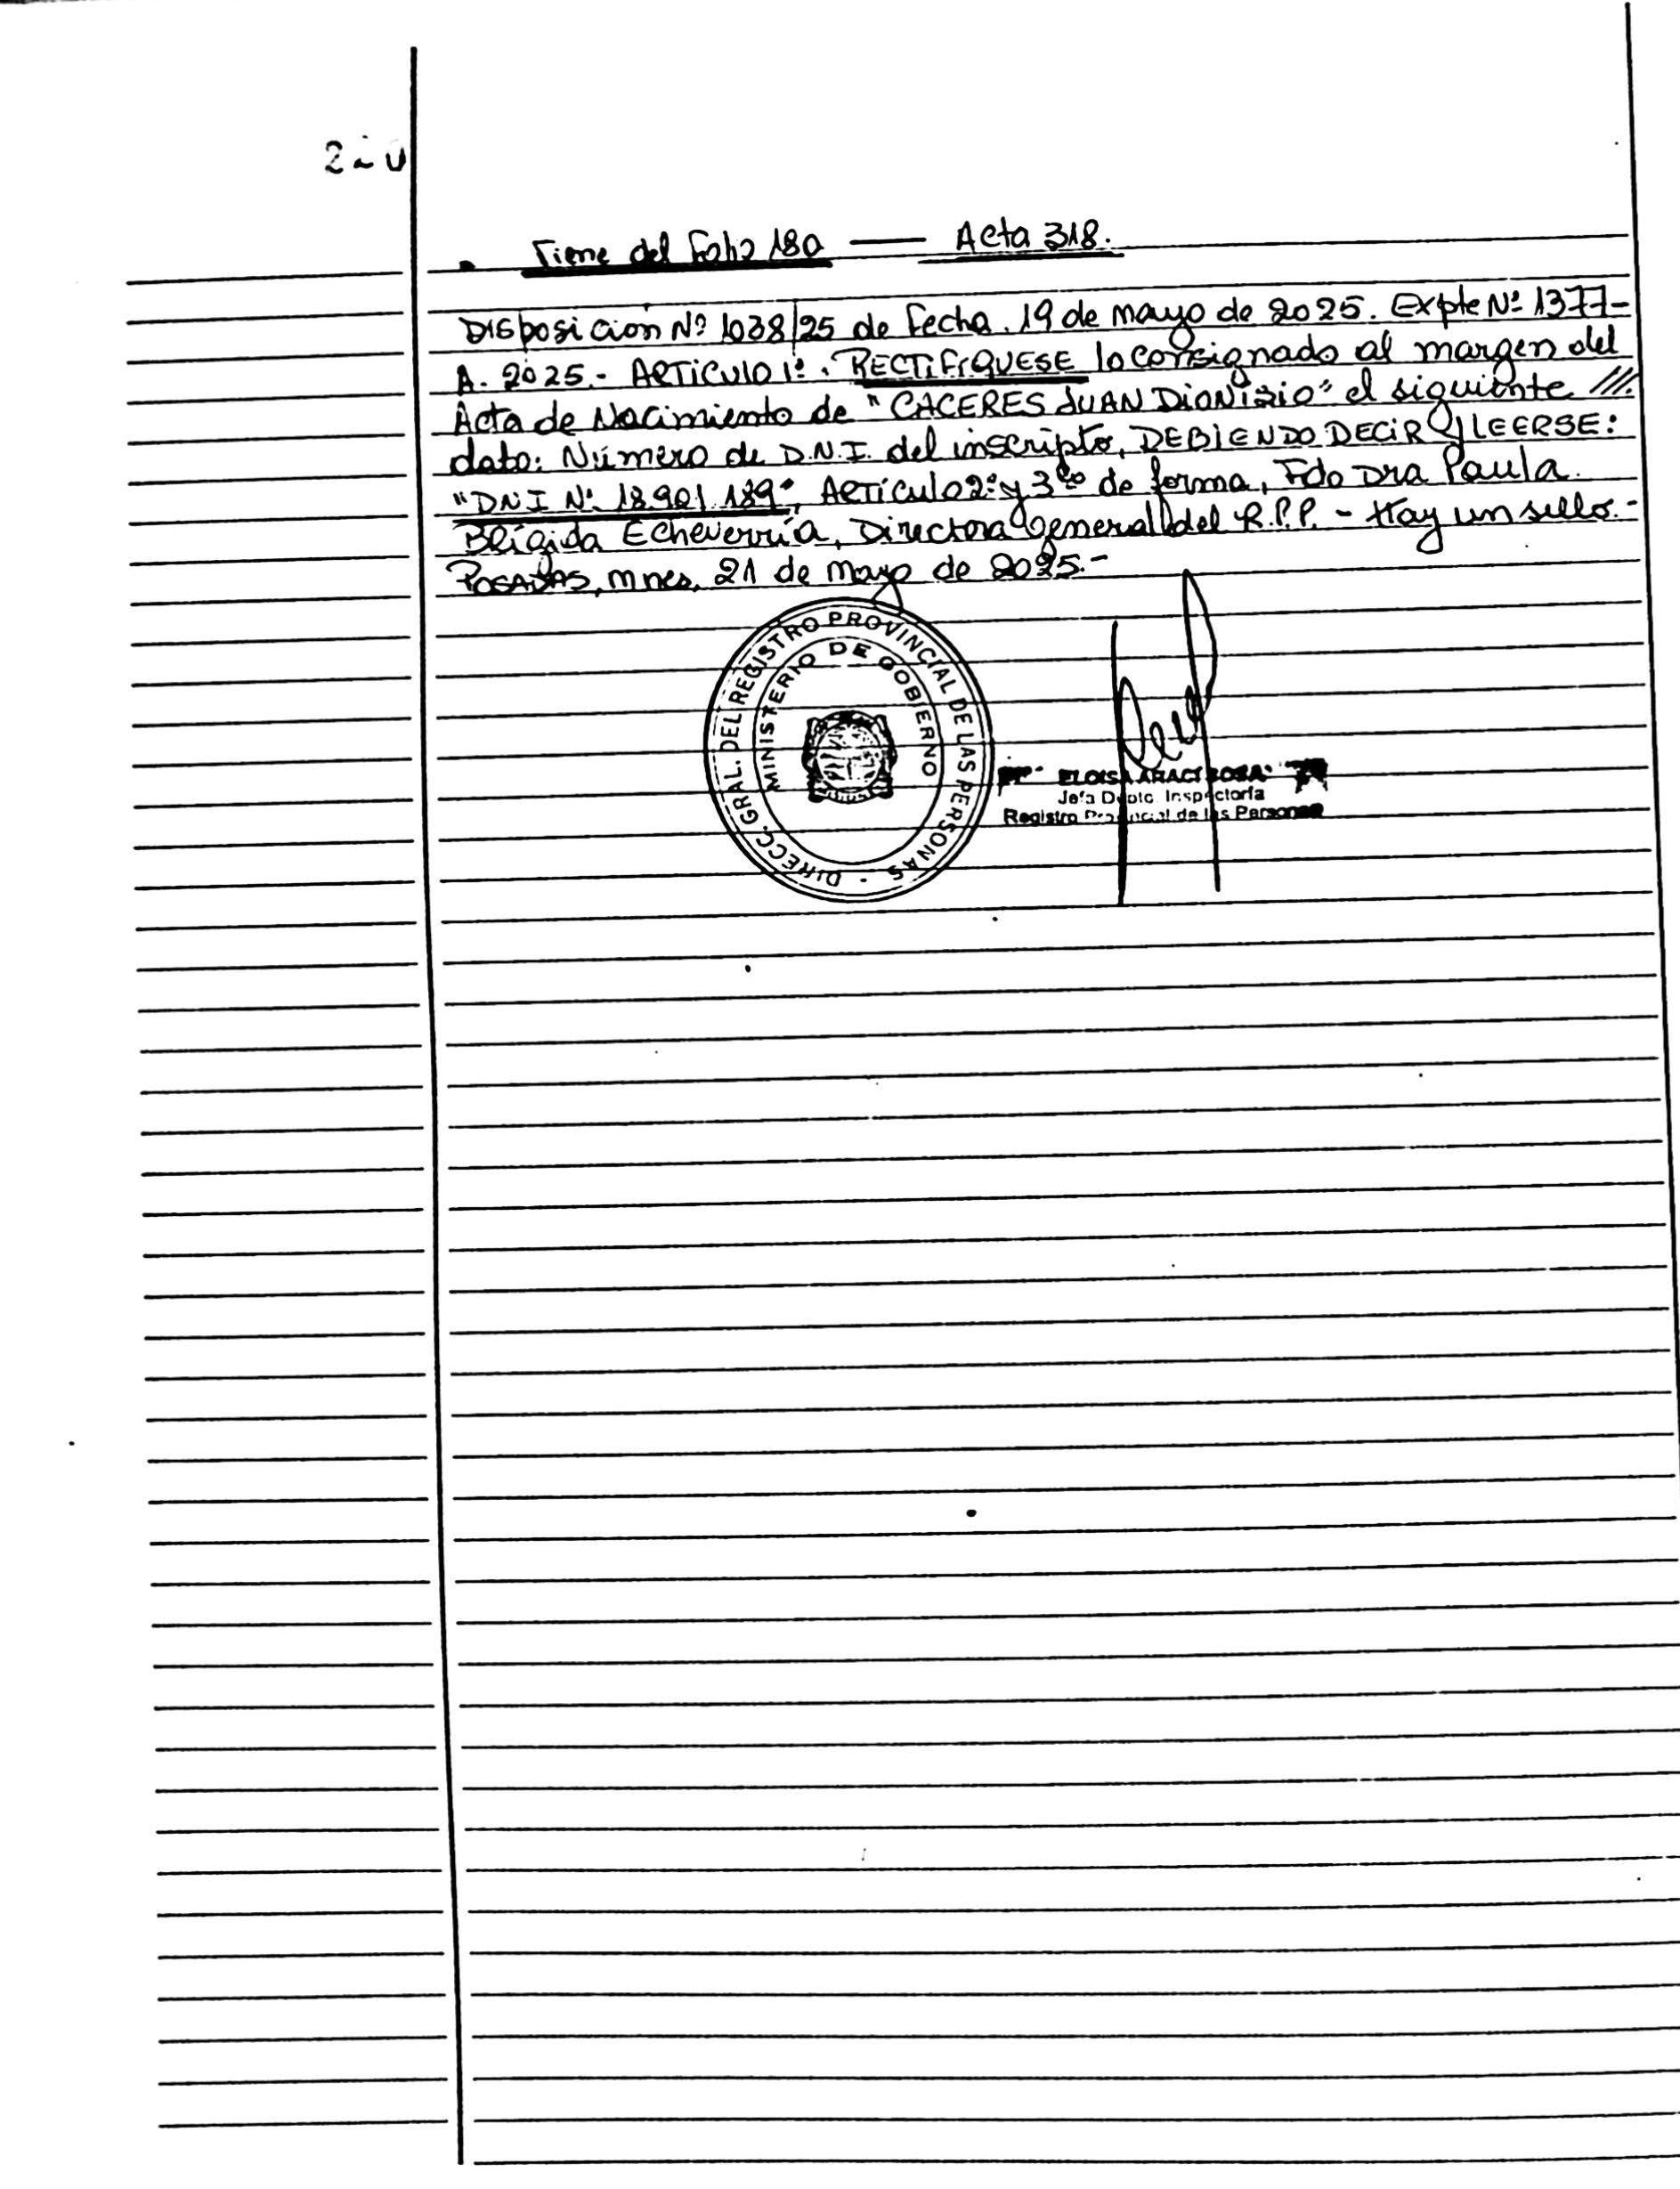 Viene del Folio 180 — Acta 318.
Disposición Nº 1038/25 de fecha. 19 de mayo de 2025. Expte Nº 1377-
A. 2025.- ARTICULO 1º. RECTIFIQUESE lo consignado al margen del
Acta de Nacimiento de "CACERES JUAN DIONISIO" el siguiente ///.
dato: Número de D.N.I. del inscripto, DEBIENDO DECIR Y LEERSE:
"DNI Nº 18.901.189", Artículo 2º y 3º de forma, Fdo Dra Paula
Brígida Echeverría, Directora General del R.P.P. - Hay un sello.-
POSADAS, mnes, 21 de mayo de 2025.-
DIRECC. GRAL. DEL REGISTRO PROVINCIAL DE LAS PERSONAS -
MINISTERIO DE GOBIERNO
ELOISA ARACI SOSA
Jefa Dpto. Inspectoría
Registro Provincial de las Personas